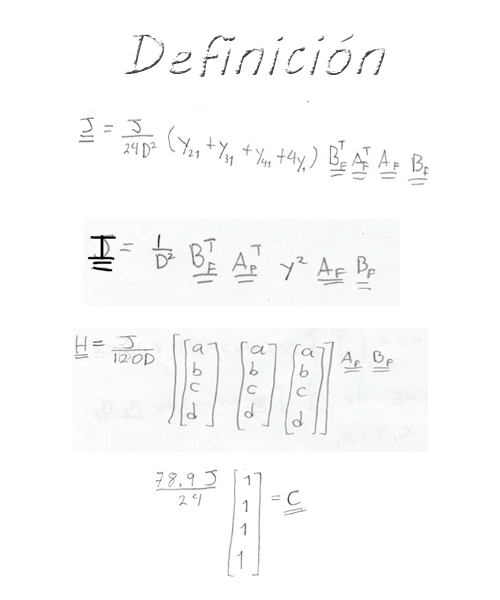 Definición
J = J/24D² (y₂₁ + y₃₁ + y₄₁ + 4y₁) B_F^T A_F^T A_F B_F
I = 1/D² B_F^T A_F^T y² A_F B_F
H = J/120D [[a b c d] [a b c d] [a b c d]] A_F B_F
78,9 J/24 [1 1 1 1] = C